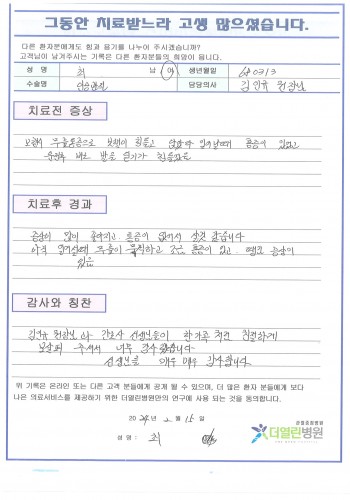 그동안 치료받느라 고생 많으셨습니다.
다른 환자분에게도 힘과 용기를 나누어 주시겠습니까?
고객님이 남겨주시는 기록은 다른 환자분들의 희망이 됩니다.
성 명 최 남 여 생년월일 680313
수술명 담당의사 김 원장님
치료전 증상
무릎통증으로 보행이 힘들고 앉았다 일어날때 통증이 있었고
치료후 경과
증상이 많이 좋아지고 통증이 없어서 살것 같습니다
아직 무릎이 조금 통증이 있고
있음
감사와 칭찬
원장님 과 간호사 선생님들이 한가족 처럼 친절하게
보살펴 주셔서 너무 감사했습니다
선생님들 매우 매우 감사합니다.
위 기록은 온라인 또는 다른 고객 분들에게 공개 될 수 있으며, 더 많은 환자 분들에게 보다
나은 의료서비스를 제공하기 위한 더열린병원만의 연구에 사용 되는 것을 동의합니다.
2024년 2월 15일
성 명 : 최
더열린병원